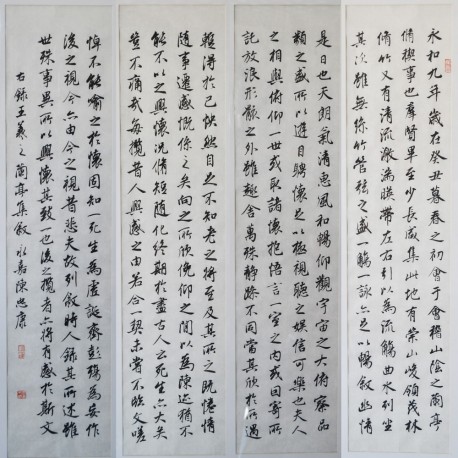 永和九年歲在癸丑暮春之初會于會稽山陰之蘭亭
脩禊事也羣賢畢至少長咸集此地有崇山峻領茂林
脩竹又有清流激湍暎帶左右引以為流觴曲水列坐
其次雖無絲竹管絃之盛一觴一詠亦足以暢敘幽情
是日也天朗氣清惠風和暢仰觀宇宙之大俯察品
類之盛所以遊目騁懷足以極視聽之娛信可樂也夫人
之相與俯仰一世或取諸懷抱悟言一室之內或因寄所
託放浪形骸之外雖趣舍萬殊靜躁不同當其欣於所遇
暫得於己怏然自足不知老之將至及其所之既惓情
隨事遷感慨係之矣向之所欣俛仰之閒以為陳迹猶不
能不以之興懷況脩短隨化終期於盡古人云死生亦大矣
豈不痛哉每攬昔人興感之由若合一契未嘗不臨文嗟
悼不能喻之於懷固知一死生為虛誕齊彭殤為妄作
後之視今亦由今之視昔悲夫故列敘時人錄其所述雖
世殊事異所以興懷其致一也後之攬者亦將有感於斯文
右錄王羲之蘭亭集敘 永嘉陳忠康